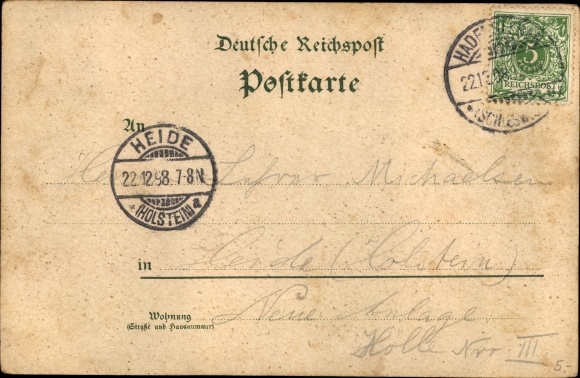 Deutsche Reichspost
Postkarte
5
REICHSPOST
An
HEIDE
22.12.98.7-8N
(HOLSTEIN)
Lehrer Michaelsen
in Heide (Holstein)
Wohnung
(Straße und Hausnummer)
Neue Anlage
Nro III
5.-